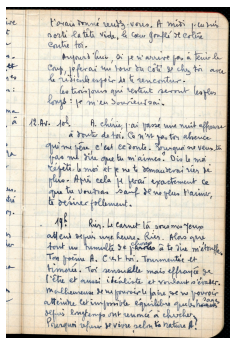 t'avais donné rendez-vous. A midi je suis
sorti la tête vide, le cœur gonflé de colère
contre toi.
Aujourd'hui, si je n'arrive pas à tenir le
coup, je ferai un tour du côté de chez toi avec
le ridicule espoir de te rencontrer.
Les trois jours qui restent seront les plus
longs : je m'en souviendrai.
12. Av. 10h A. chérie, j'ai passé une nuit affreuse
à douter de toi. Ce n'est pas ton absence
qui me gêne, c'est ce doute. Pourquoi ne veux-tu
pas me dire que tu m'aimes. Dis le moi
répète-le moi et je ne te demanderai rien de
plus. Après cela je ferai exactement ce
que tu voudras sauf de ne plus t'aimer,
te désirer follement.
17h. Rien. Le carnet là sous mes yeux
attend depuis une heure. Rien. Alors que
tout un tumulte de choses à te dire m'étouffe.
Ton poème A. C'est toi. Tourmentée et
timorée. Toi sensuelle mais effrayée de
l'être et aussi idéaliste et voulant s'évader.
Malheureuse de ne pouvoir le faire, de ne pouvoir
atteindre cet impossible équilibre que les hommes
depuis longtemps ont renoncé à chercher.
Pourquoi refuses-tu de vivre selon ta nature A!